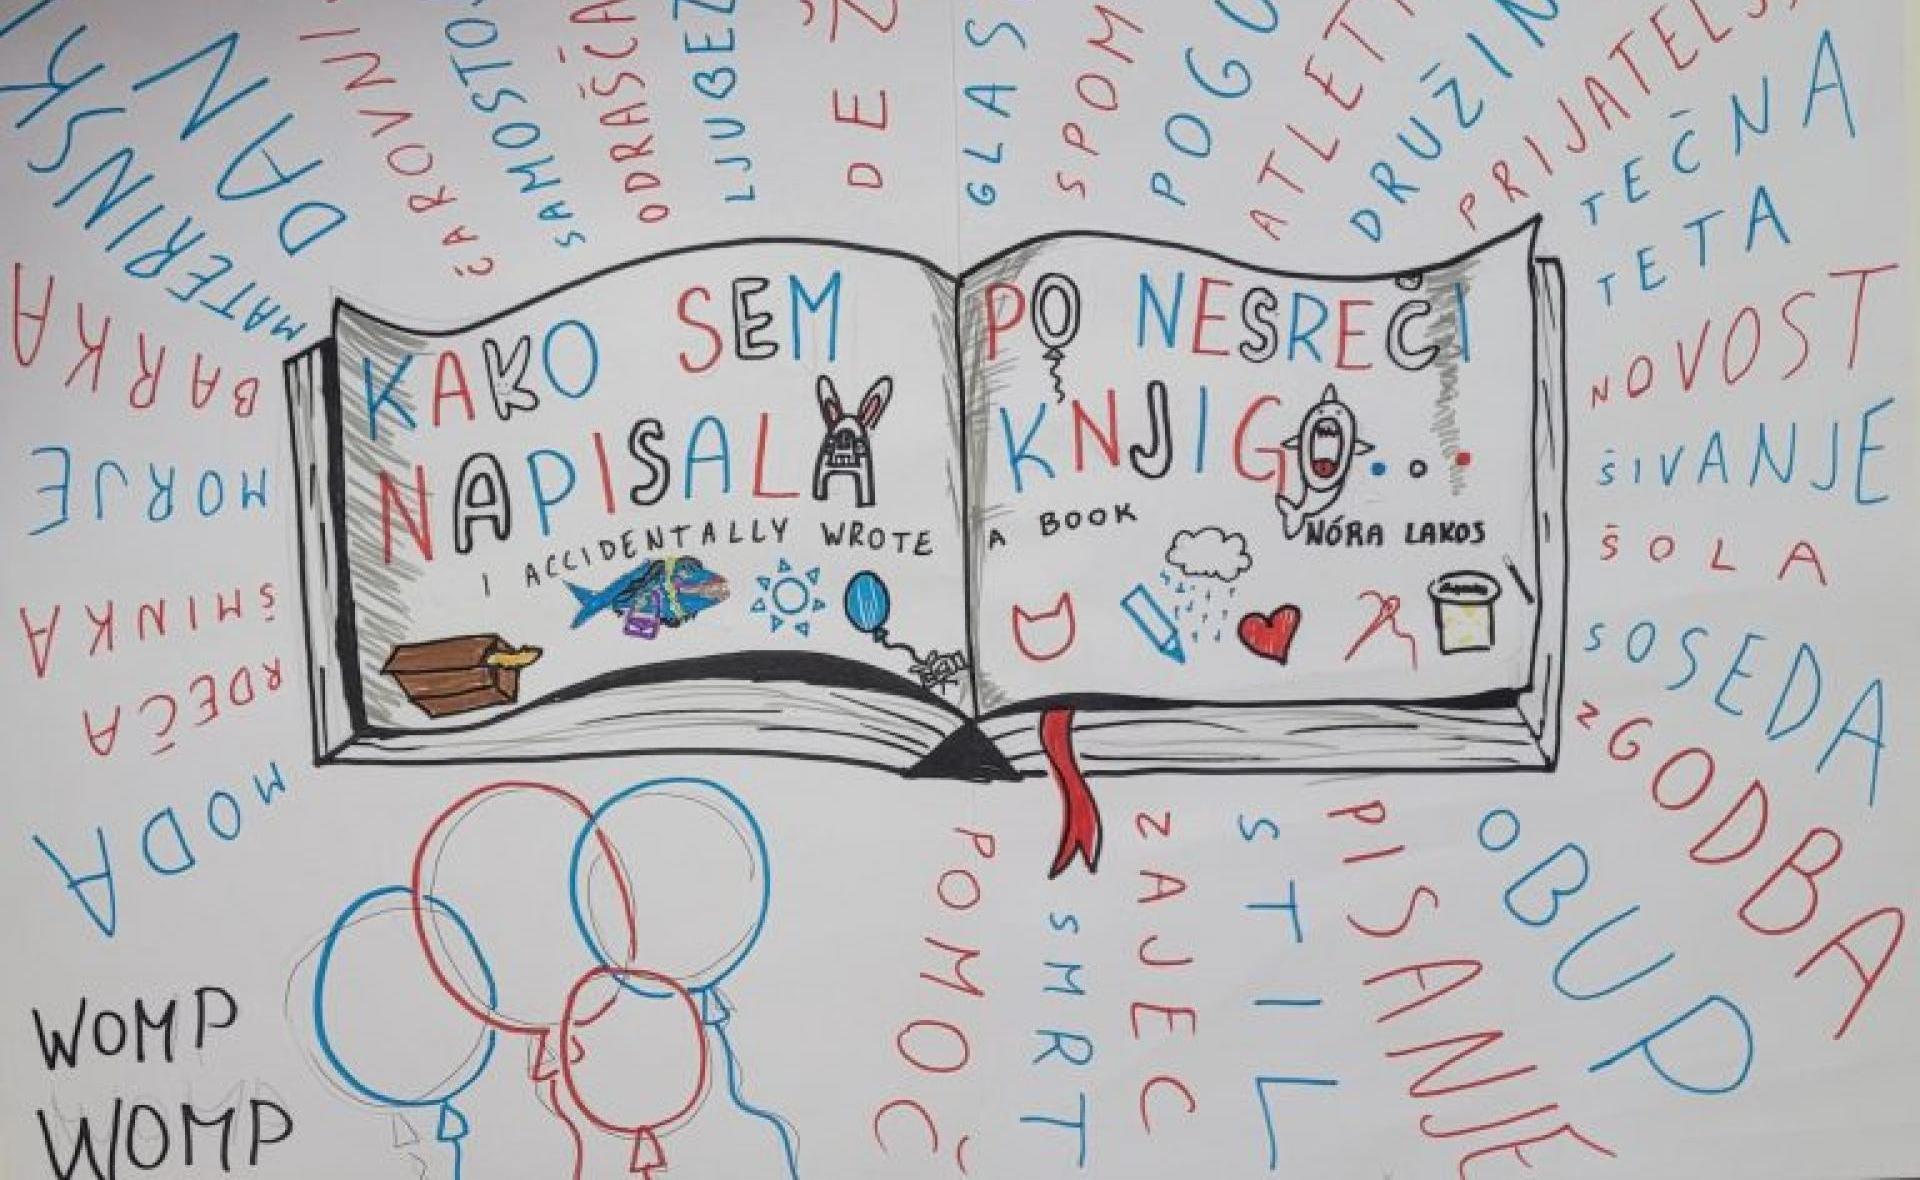 MATERINSK
DAN
ČAROVNI
SAMOSTO
ODRAŠČA
LJUBEZ
DEŽ
GLAS
SPOM
POGU
ATLET
DRUŽIN
PRIJATELJ
TEČNA
TETA
NOVOST
ŠIVANJE
ŠOLA
SOSEDA
ZGODBA
OBUP
PISANJE
STIL
ZAJEC
SMRT
POMOČ
BARKA
MORJE
ŠMINKA
RDEČA
MODA
KAKO SEM
NAPISALA
PO NESREČI
KNJIGO...
I ACCIDENTALLY WROTE A BOOK
NÓRA LAKOS
WOMP
WOMP